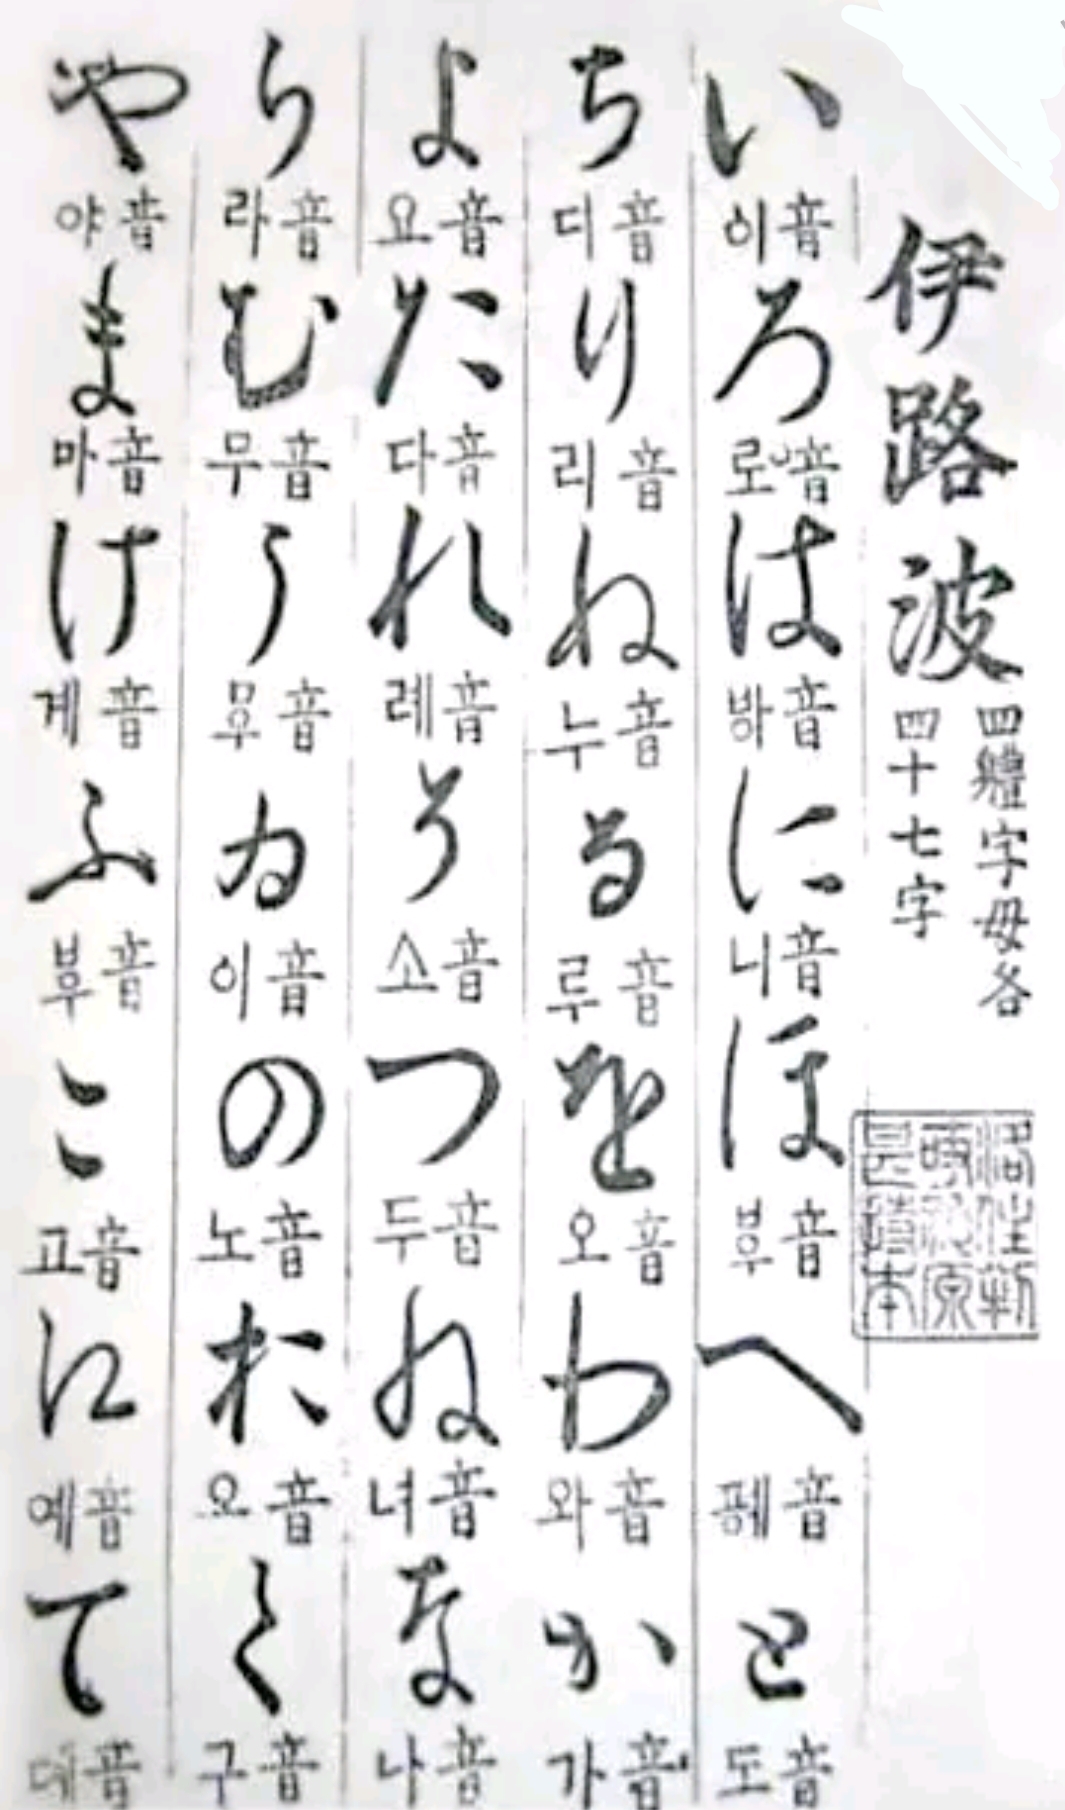 伊路波
四體字母各
四十七字
い 이音 ろ 로音 は ᄫᅡ音 に 니音 ほ ᄫᅩ音 へ 音 と 도音
ち 디音 り 리音 ぬ 누音 る 루音 を 오音 わ 와音 か 가音
よ 요音 た 다音 れ 례音 そ 소音 つ 두音 ね 녀音 な 나音
ら 라音 む 무音 う ᄝᅮ音 ゐ 이音 の 노音 お 오音 く 구音
や 야音 ま 마音 け 계音 ふ ᄫᅮ音 こ 고音 え 예音 て 뎨音